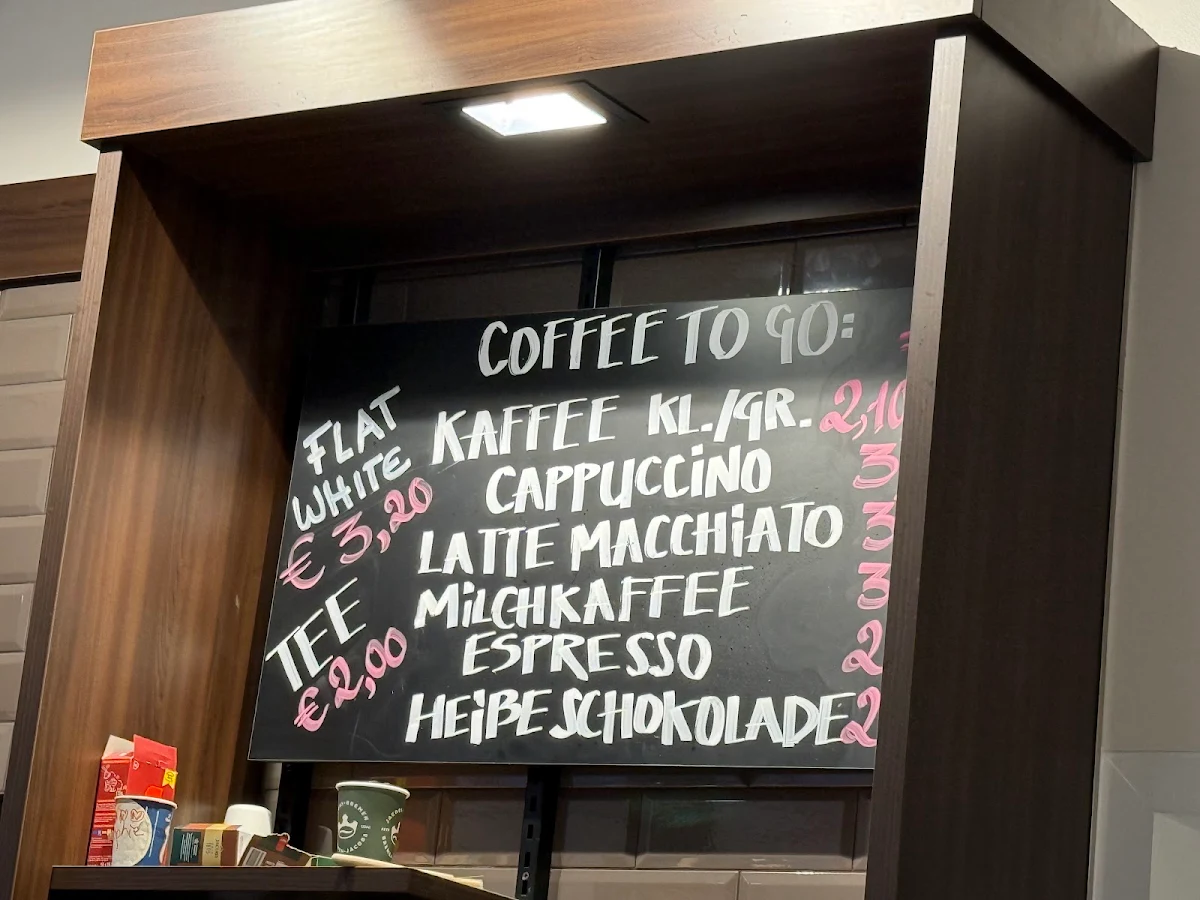 COFFEE TO GO:
FLAT
WHITE
€ 3,20
TEE
€ 2,00
KAFFEE KL./GR. 2,10
CAPPUCCINO 3
LATTE MACCHIATO 3
MILCHKAFFEE 3
ESPRESSO 2
HEIßE SCHOKOLADE 2